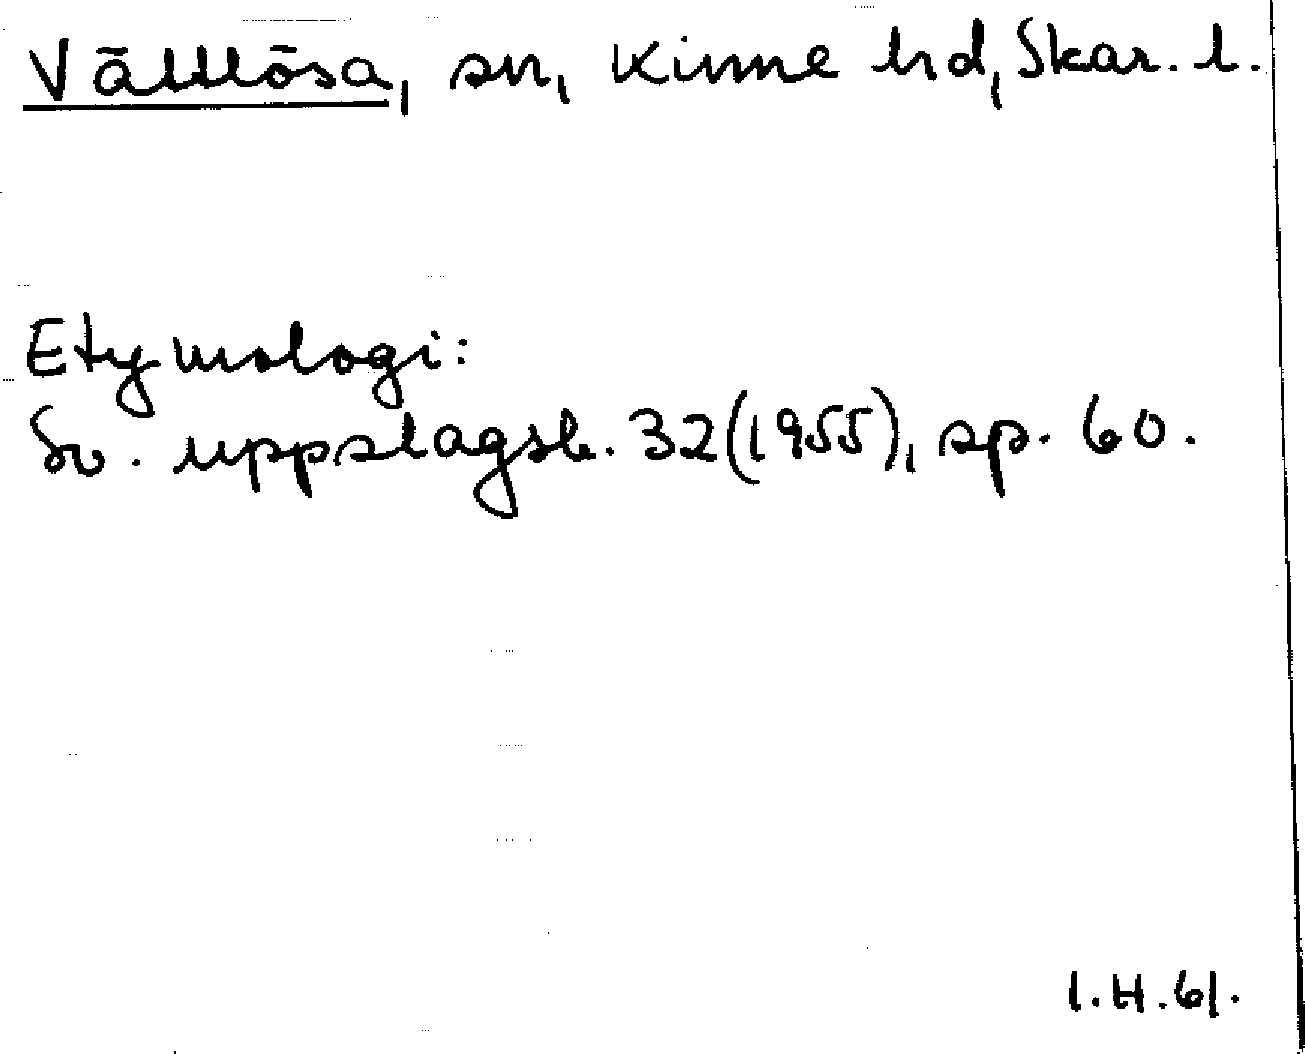 Vättlösa, sn, Kinne hd, Skar. l.
Etymologi:
Sv. uppslagsb. 32 (1955), sp. 60.
I.H.61.